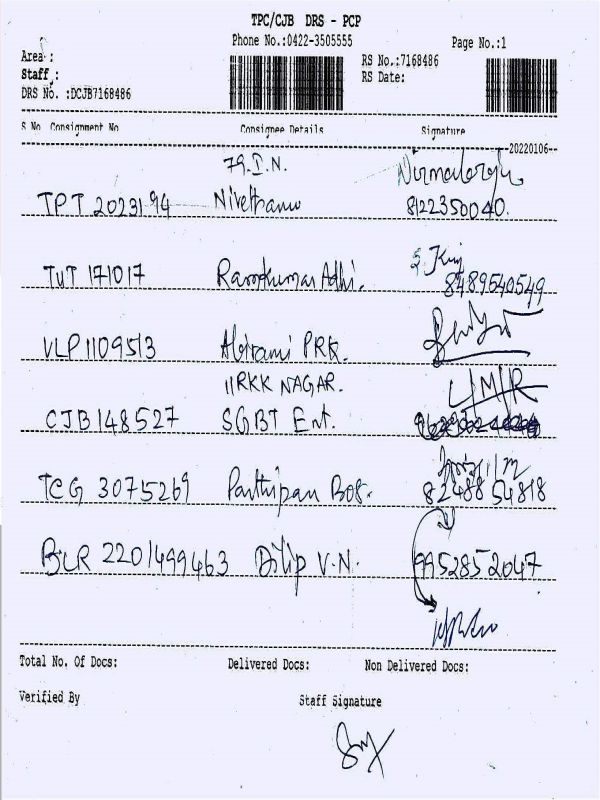 TPC/CJB DRS - PCP
Phone No.:0422-3505555 Page No.:1
Area :
Staff :
DRS No. :DCJB7168486
RS No.:7168486
RS Date:
S No Consignment No Consignee Details Signature
--20220106--
79.I.N.
TPT 2023194 Nivethanu
8122350040.
TUT 171017 Ramkumar Adhi.
8489540549
VLP 1109513 Abirami PRK.
11RKK NAGAR.
CJB 148527 SGBT Ent.
TCG 3075269 Parthipan Bos.
82488 54818
BLR 2201499463 Dilip V.N. 9952852047
Total No. Of Docs: Delivered Docs: Non Delivered Docs:
Verified By Staff Signature